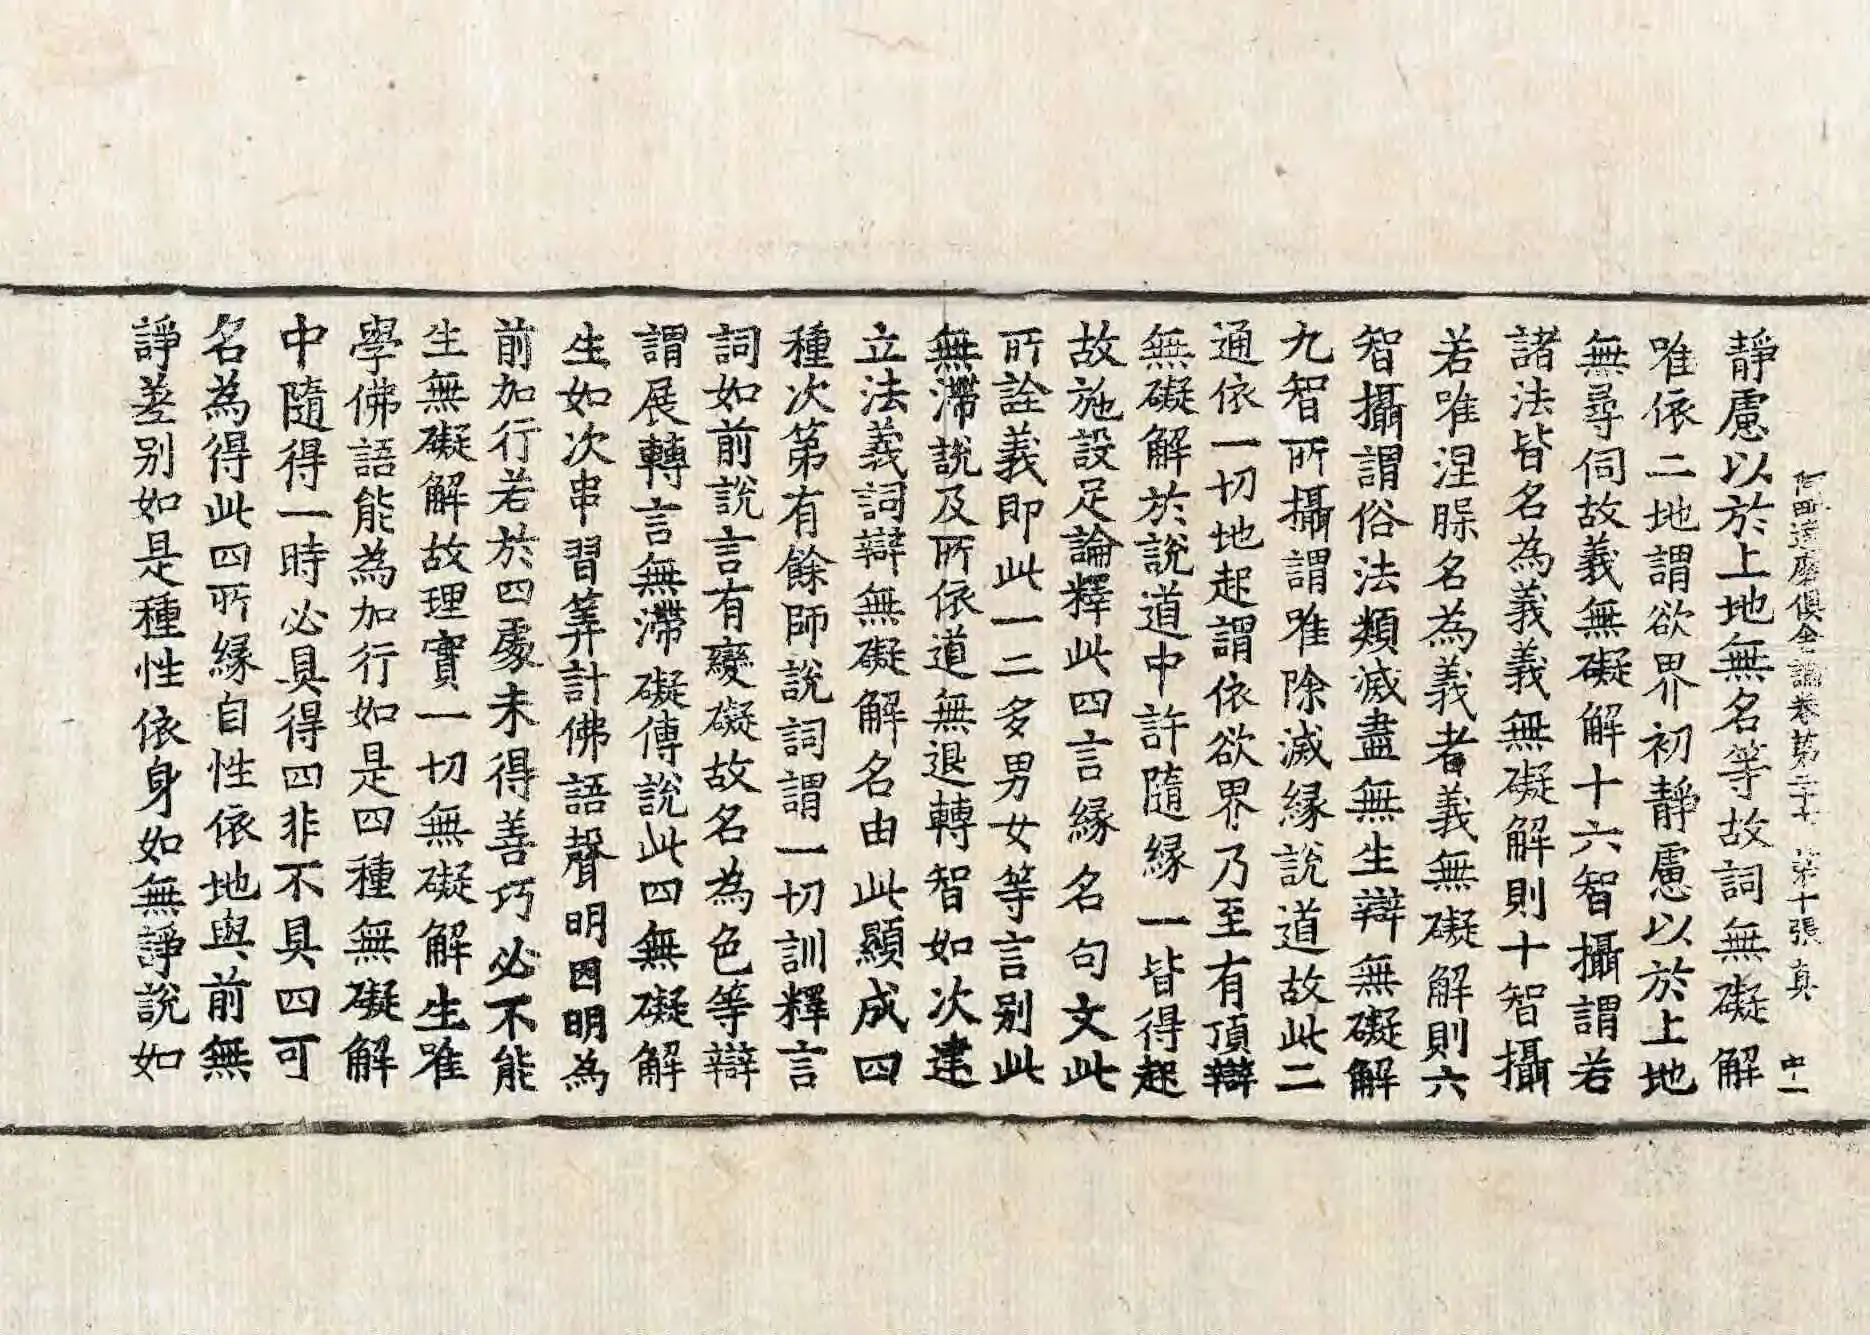 阿毗達磨俱舍論卷第二十七 第十張 真 中二
靜慮以於上地無名等故詞無礙解
唯依二地謂欲界初靜慮以於上地
無尋伺故義無礙解十六智攝謂若
諸法皆名為義義無礙解則十智攝
若唯涅槃名為義者義無礙解則六
智攝謂俗法類滅盡無生辯無礙解
九智所攝謂唯除滅緣說道故此二
通依一切地起謂依欲界乃至有頂辯
無礙解於說道中許隨緣一皆得起
故施設足論釋此四言緣名句文此
所詮義即此一二多男女等言別此
無滯說及所依道無退轉智如次建
立法義詞辯無礙解名由此顯成四
種次第有餘師說詞謂一切訓釋言
詞如前說言有變礙故名為色等辯
謂展轉言無滯礙傳說此四無礙解
生如次串習筭計佛語聲明因明為
前加行若於四處未得善巧必不能
生無礙解故理實一切無礙解生唯
學佛語能為加行如是四種無礙解
中隨得一時必具得四非不具四可
名為得此四所緣自性依地與前無
諍差別如是種性依身如無諍說如